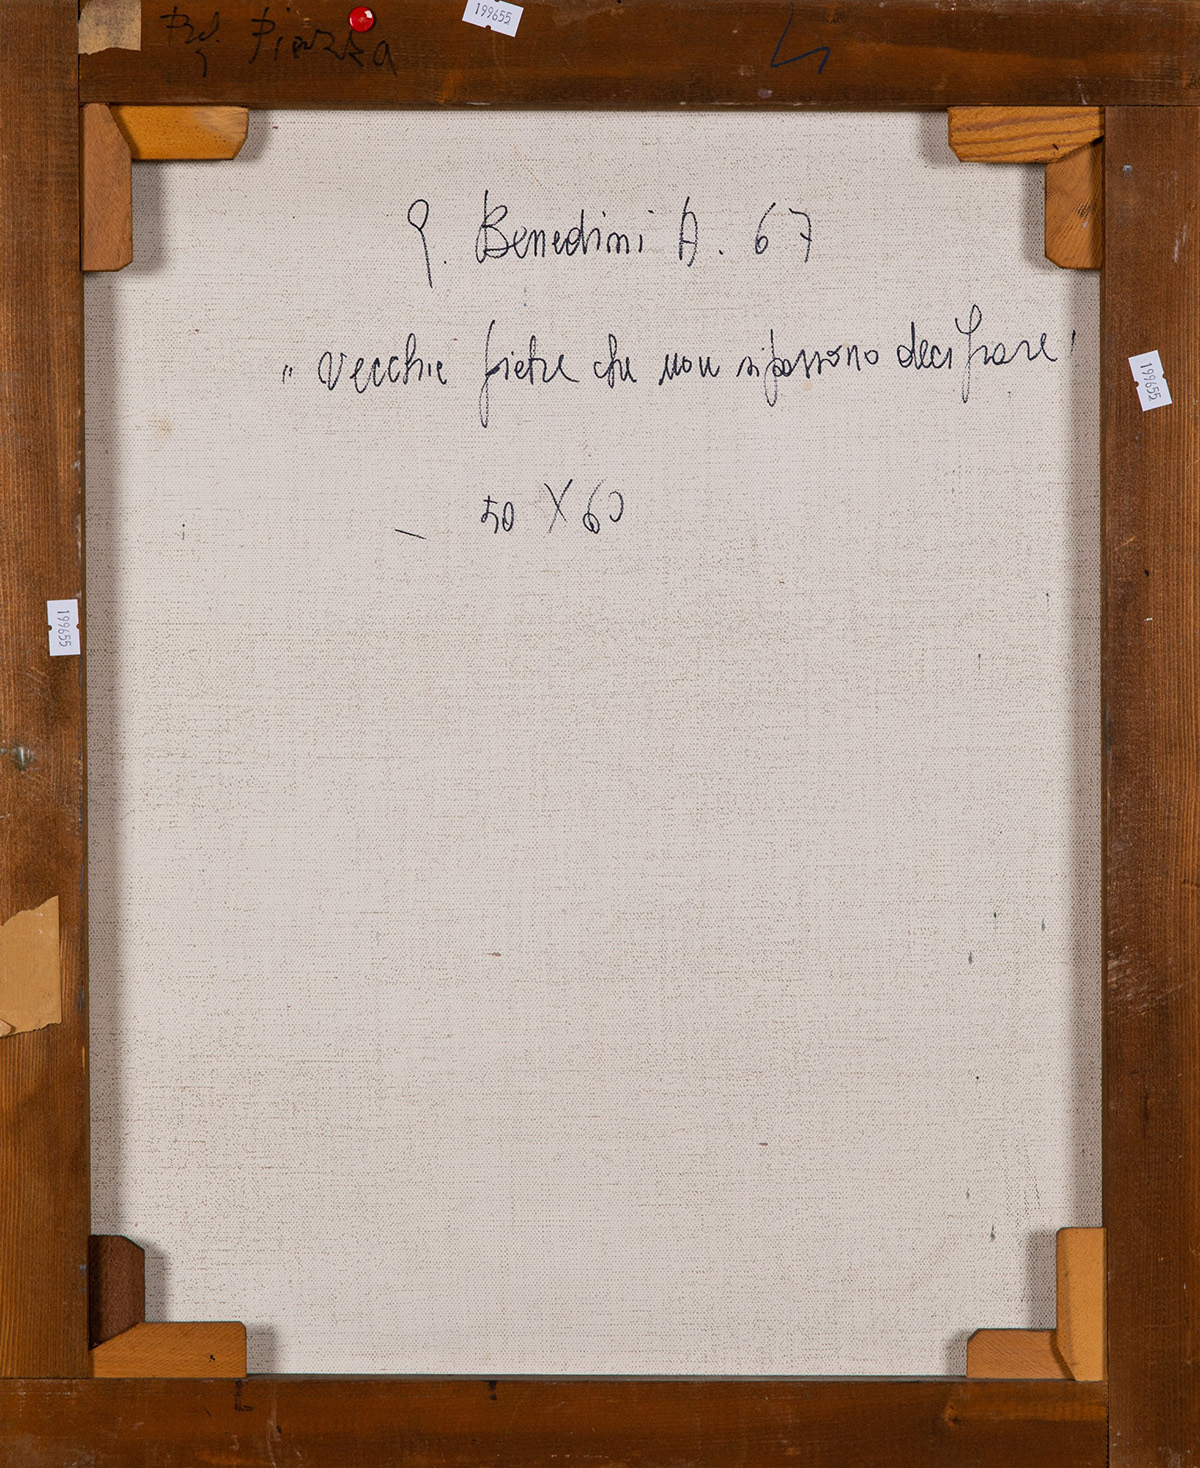 Prof. Piazza
199655
G. Benedini A. 67
"Vecchie pietre che non si possono decifrare"
199655
50 X 60
199655